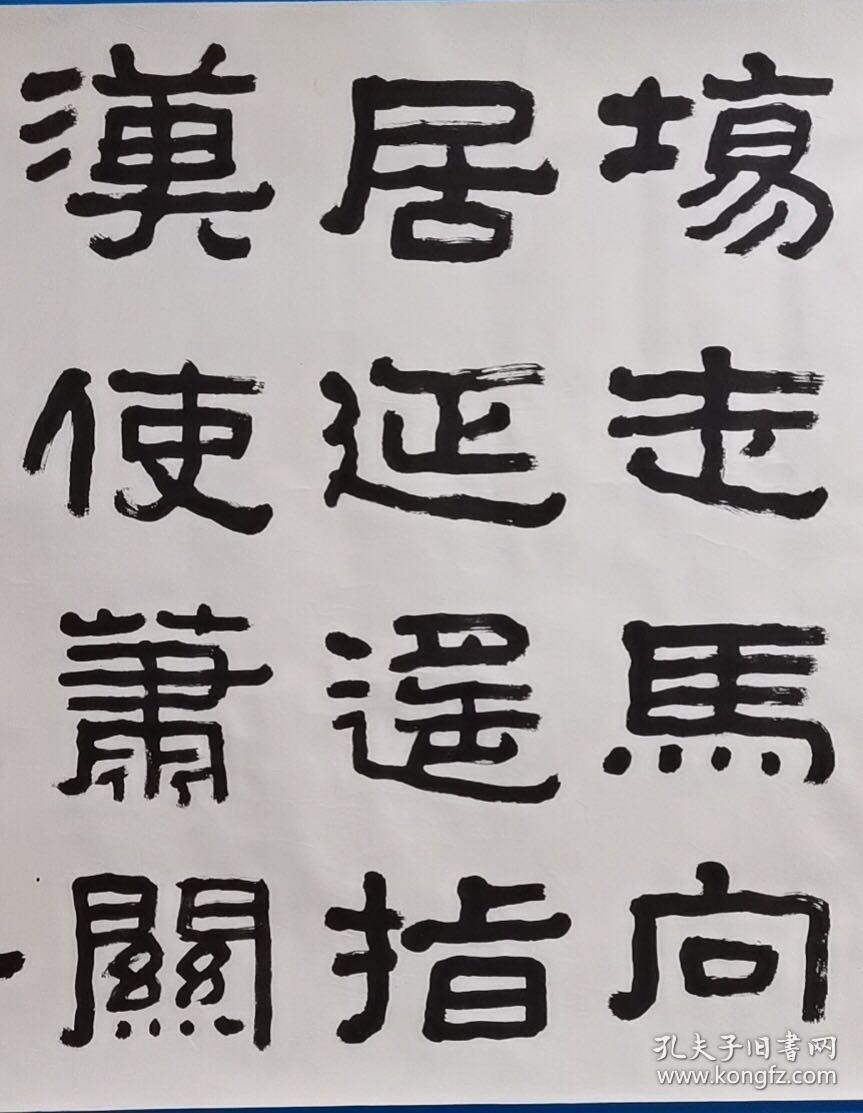 塲走馬向
居延遙指
漢使蕭關
孔夫子旧书网
www.kongfz.com